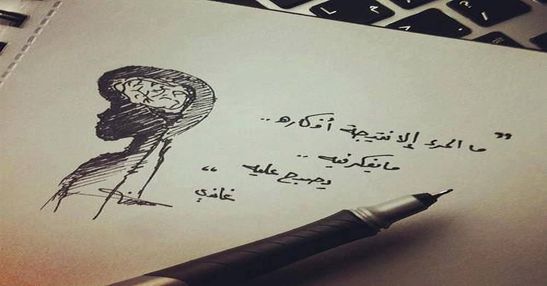 " ما المرء إلا نتيجة أفكاره ..
ما يفكر فيه ..
يصبح عليه "
غاندي